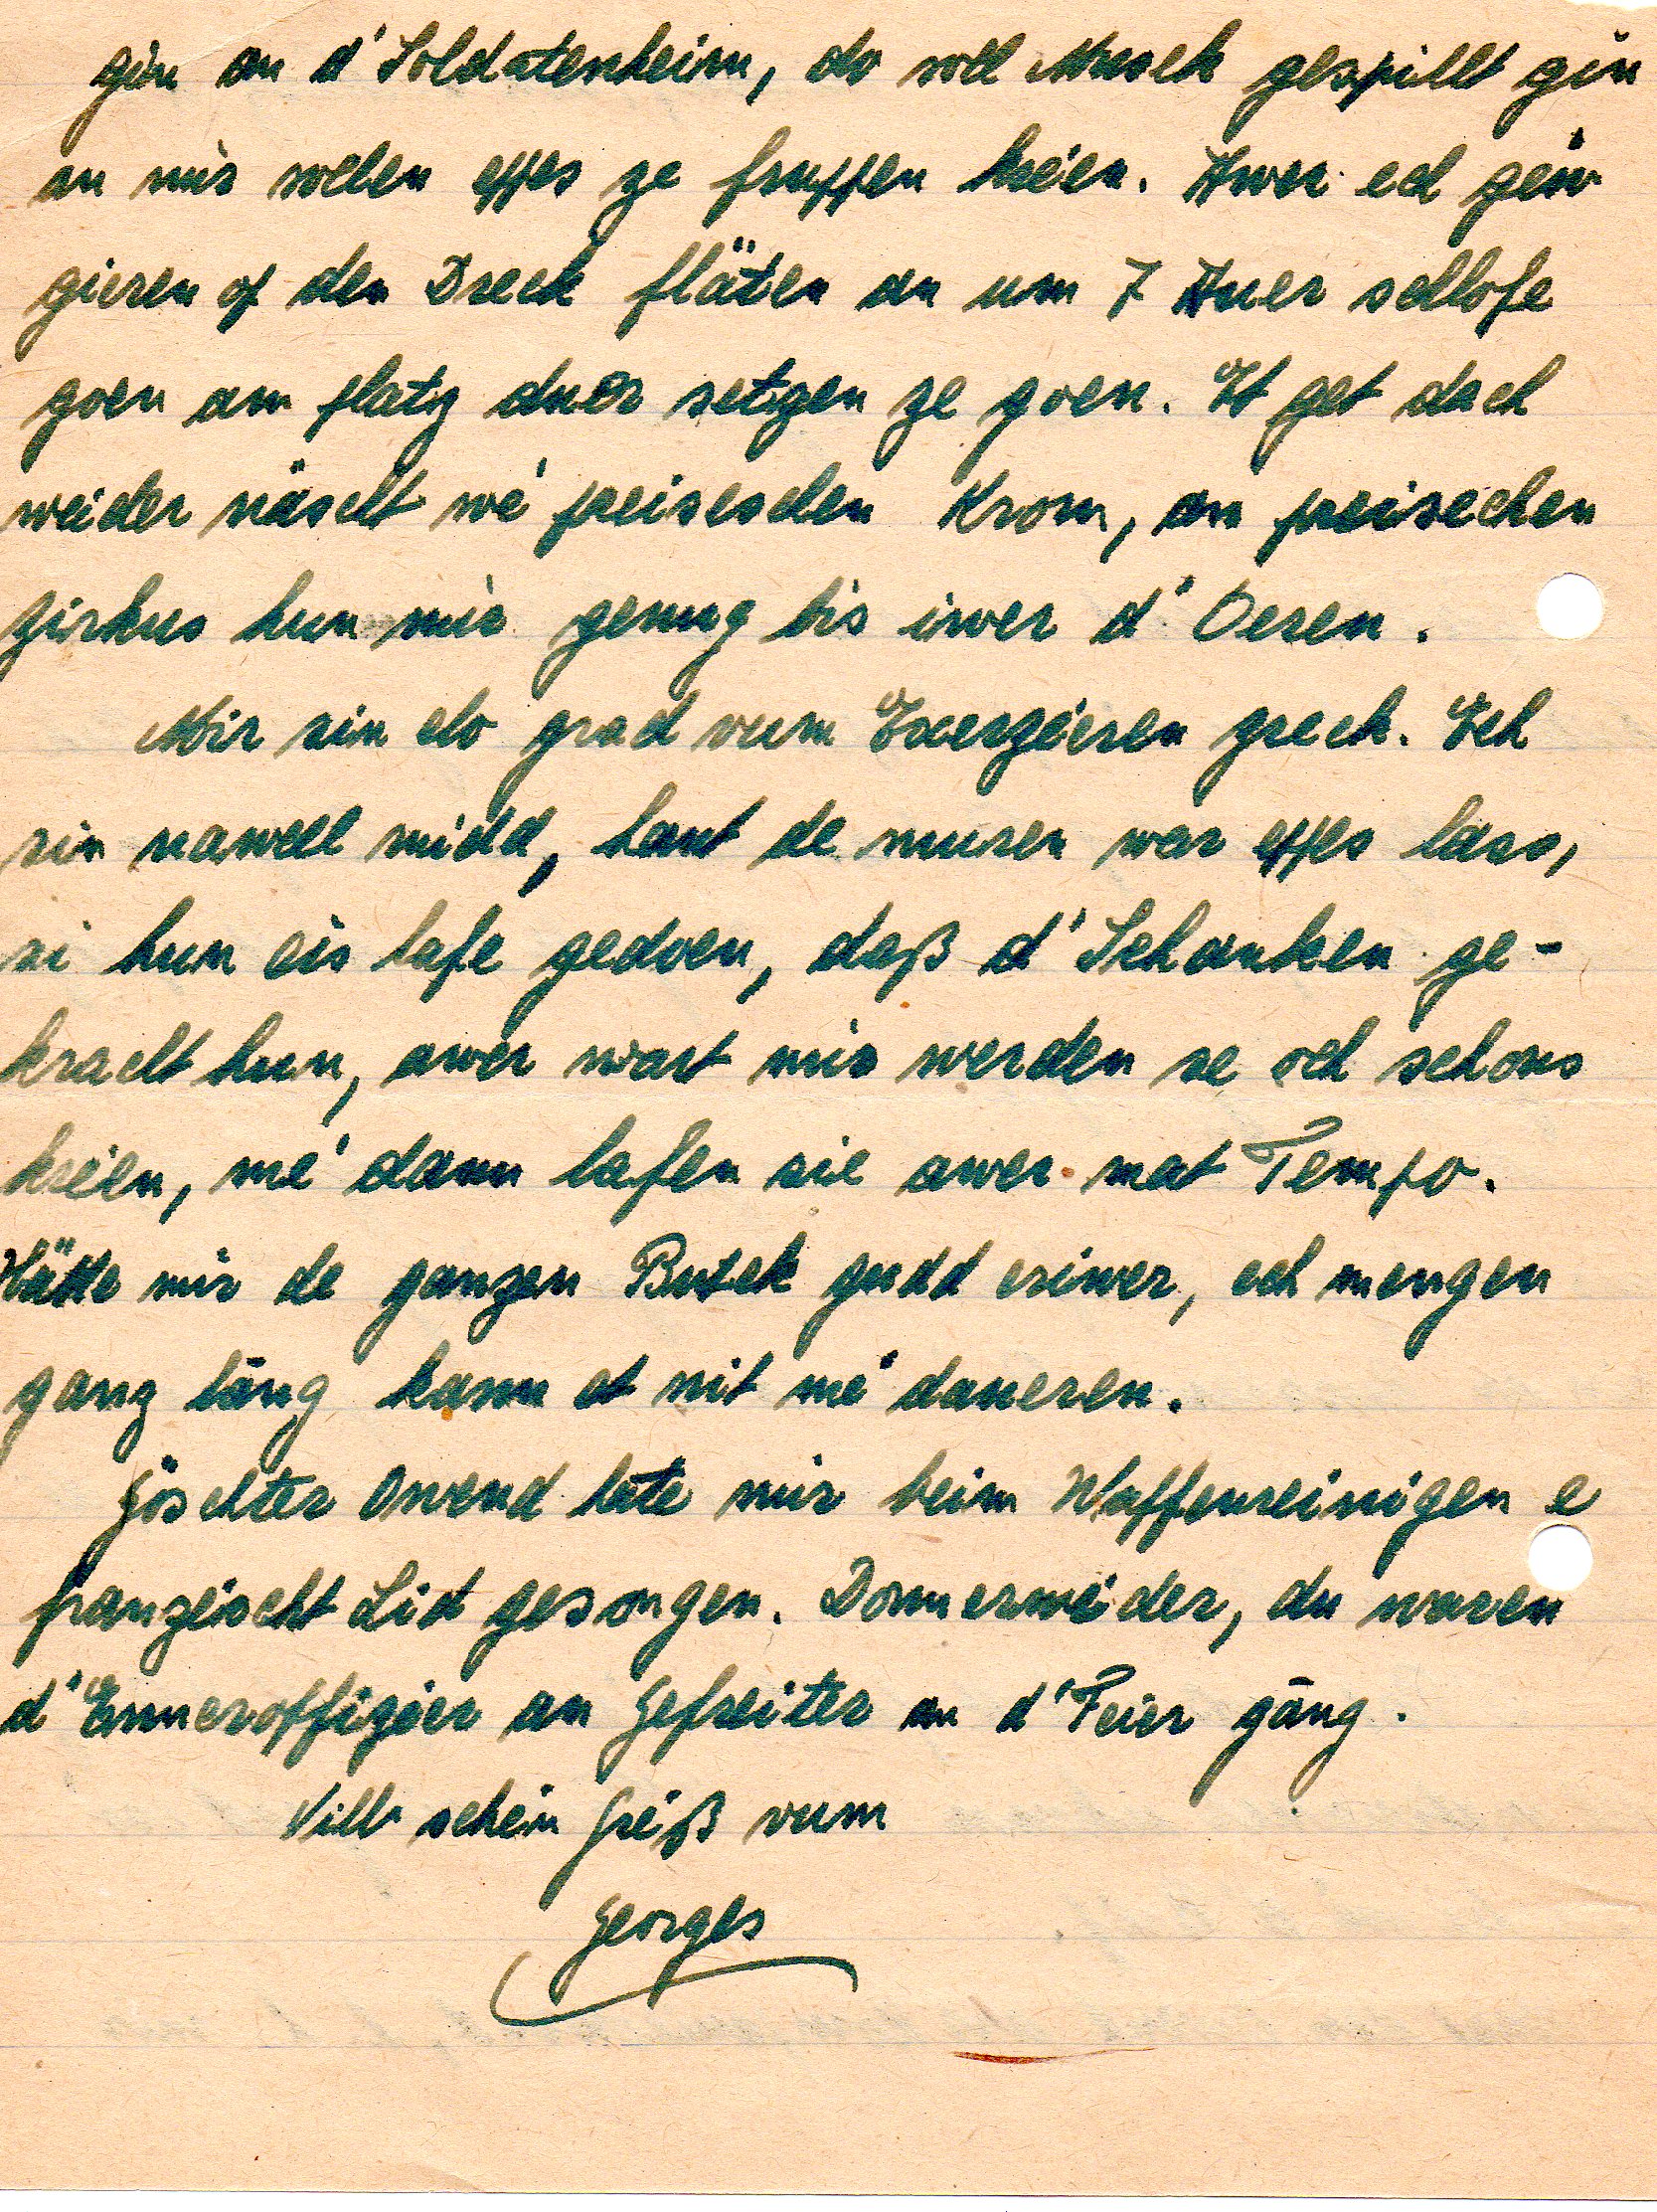 gin an d'Soldatenheim, do soll Musek gespillt gin
an mir sollen eppes ze fruppen kréien. Awer ech géiw
gieren op den Dreck fläten an um 7 Auer schlofe
goen am platz duer setzen ze goen. Et get dach
weider näscht wé preiseschen Krom, an preisechen
Zirkus hun mir genug bis iwer d'Oeren.
Mir sin elo grad vum Exerzéieren zreck. Ech
sin nawell midd, haut de muren war eppes lass,
si hun eis lafe gedoen, daß d'Schanken ge-
kracht hun, awer wart mir werden se och schons
kréien, mé dann lafen sie awer mat Tempo.
Hätte mir de ganzen Butek gudd eriwer, ech mengen
ganz läng kann et nit mé daueren.
Göschter Owend hate mir beim Waffenreinigen e
franzéischt Lid gesongen. Donnerwéider, du waren
d'Enneroffizéier an Gefreiter an d'Feier gäng.
Vill schéin Gréiß vum
Georges